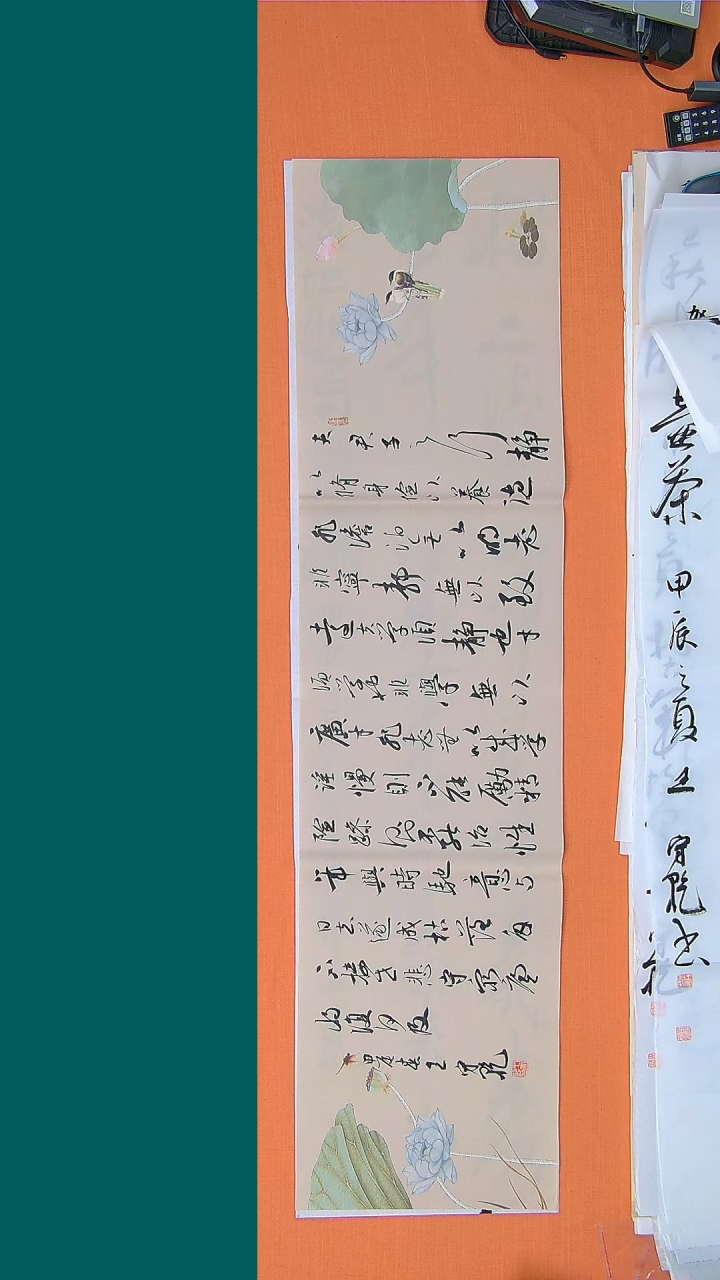 夫君子之行靜
以脩身儉以養德
非澹泊無以明志
非寧靜無以致
遠夫學須靜也才
須學也非學無以
廣才非志無以成學
淫慢則不能勵精
險躁則不能治性
年與時馳意與
日去遂成枯落多
不接世悲守窮廬
將復何及
甲辰春王守乾
茶
甲辰之夏王守乾書